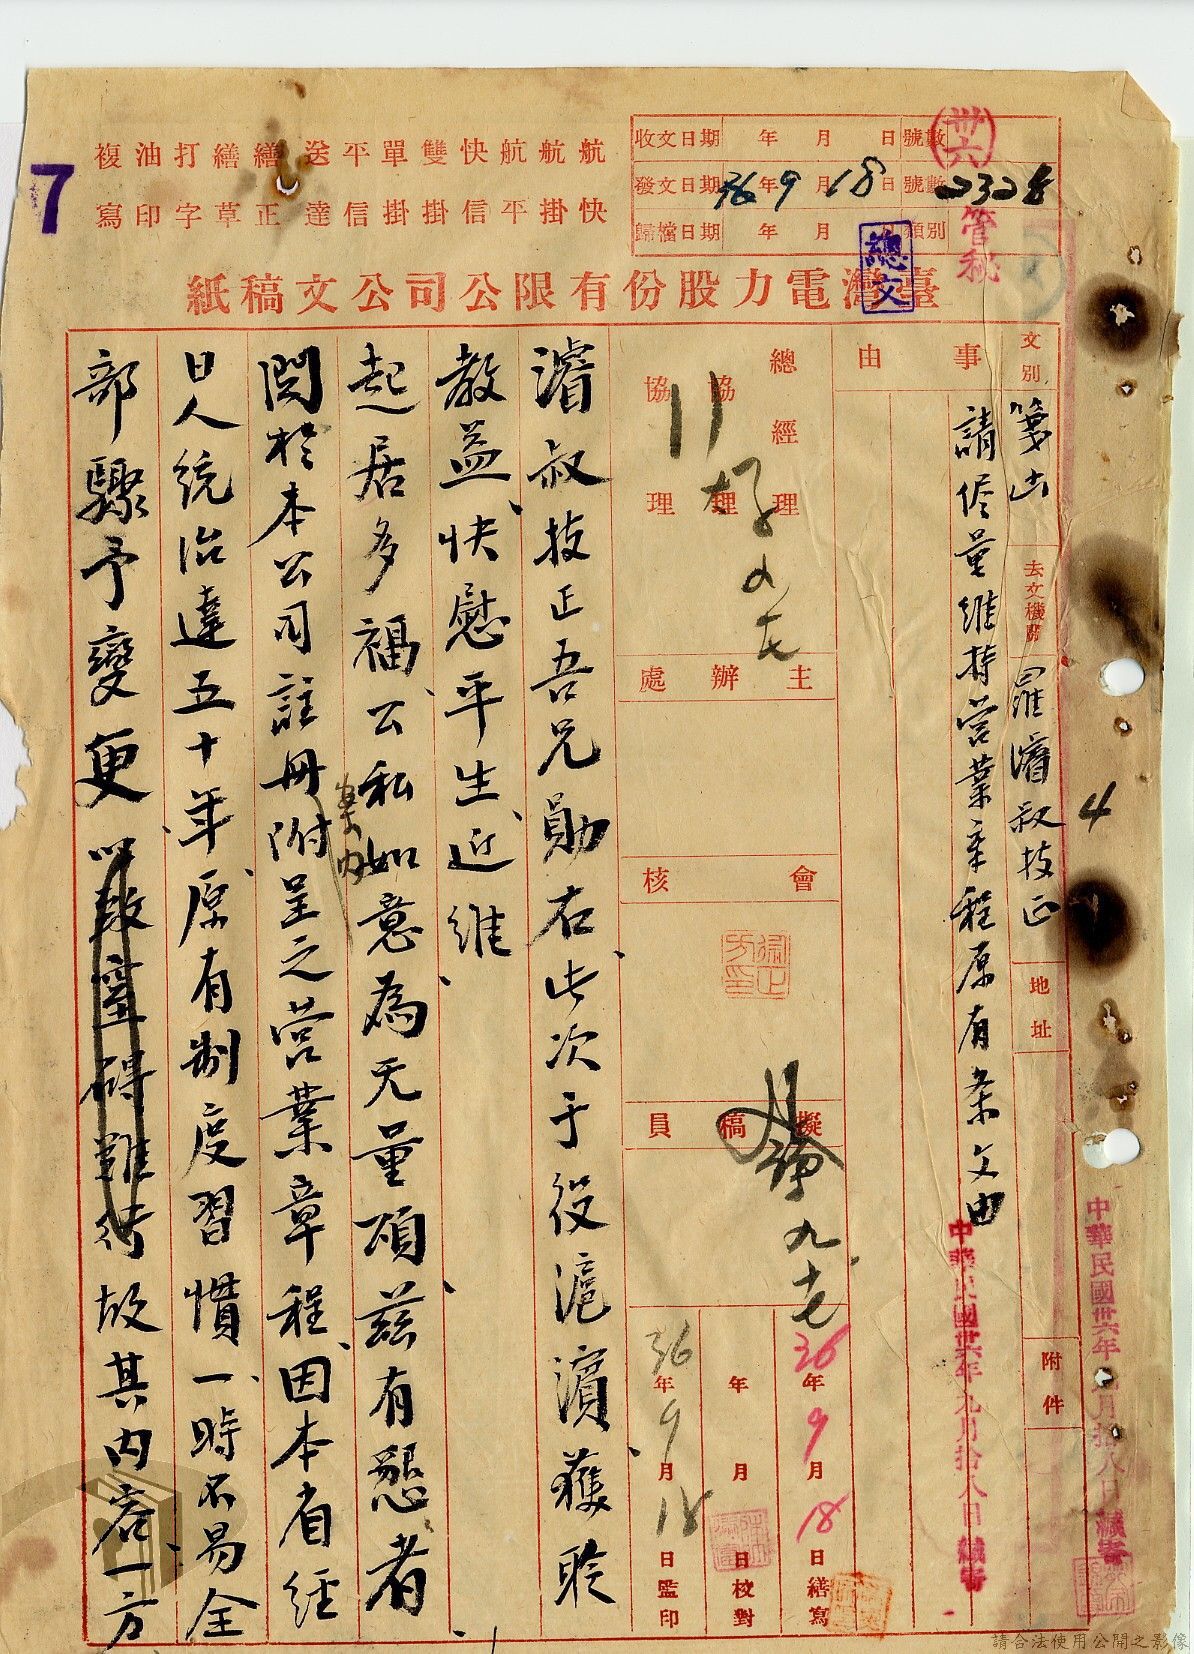 7
航 航 航 快 雙 單 平 送 繕 繕 打 油 複
快 掛 平 信 掛 掛 信 達 正 草 字 印 寫
收文日期 年 月 日 號數
發文日期 36年9月18日 號數
歸檔日期 年 月 日 類別
卅六
管秘
總文
臺灣電力股份有限公司公文稿紙
文別 箋函
去文機關 羅濬叔技正
地址
附件
4
中華民國卅六年九月拾八日繕寄
事由
請儘量維持營業章程原有条文由
中華民國卅六年九月拾八日繕寄
總經理
協理
協理
主辦處
會核
擬稿員
九
36年9月18日繕寫
年 月 日校對
36年9月18日監印
濬叔技正吾兄勛右、此次于役滬濱、獲聆
教益、快慰平生、近維、
起居多福、公私如意為无量頌、茲有懇者、
関於本公司註冊
案內
附呈之營業章程、因本省經
日人統治達五十年、原有制度習慣、一時不易全
部驟予變更、以致窒碍難行故其內容、一方
請合法使用公開之影像